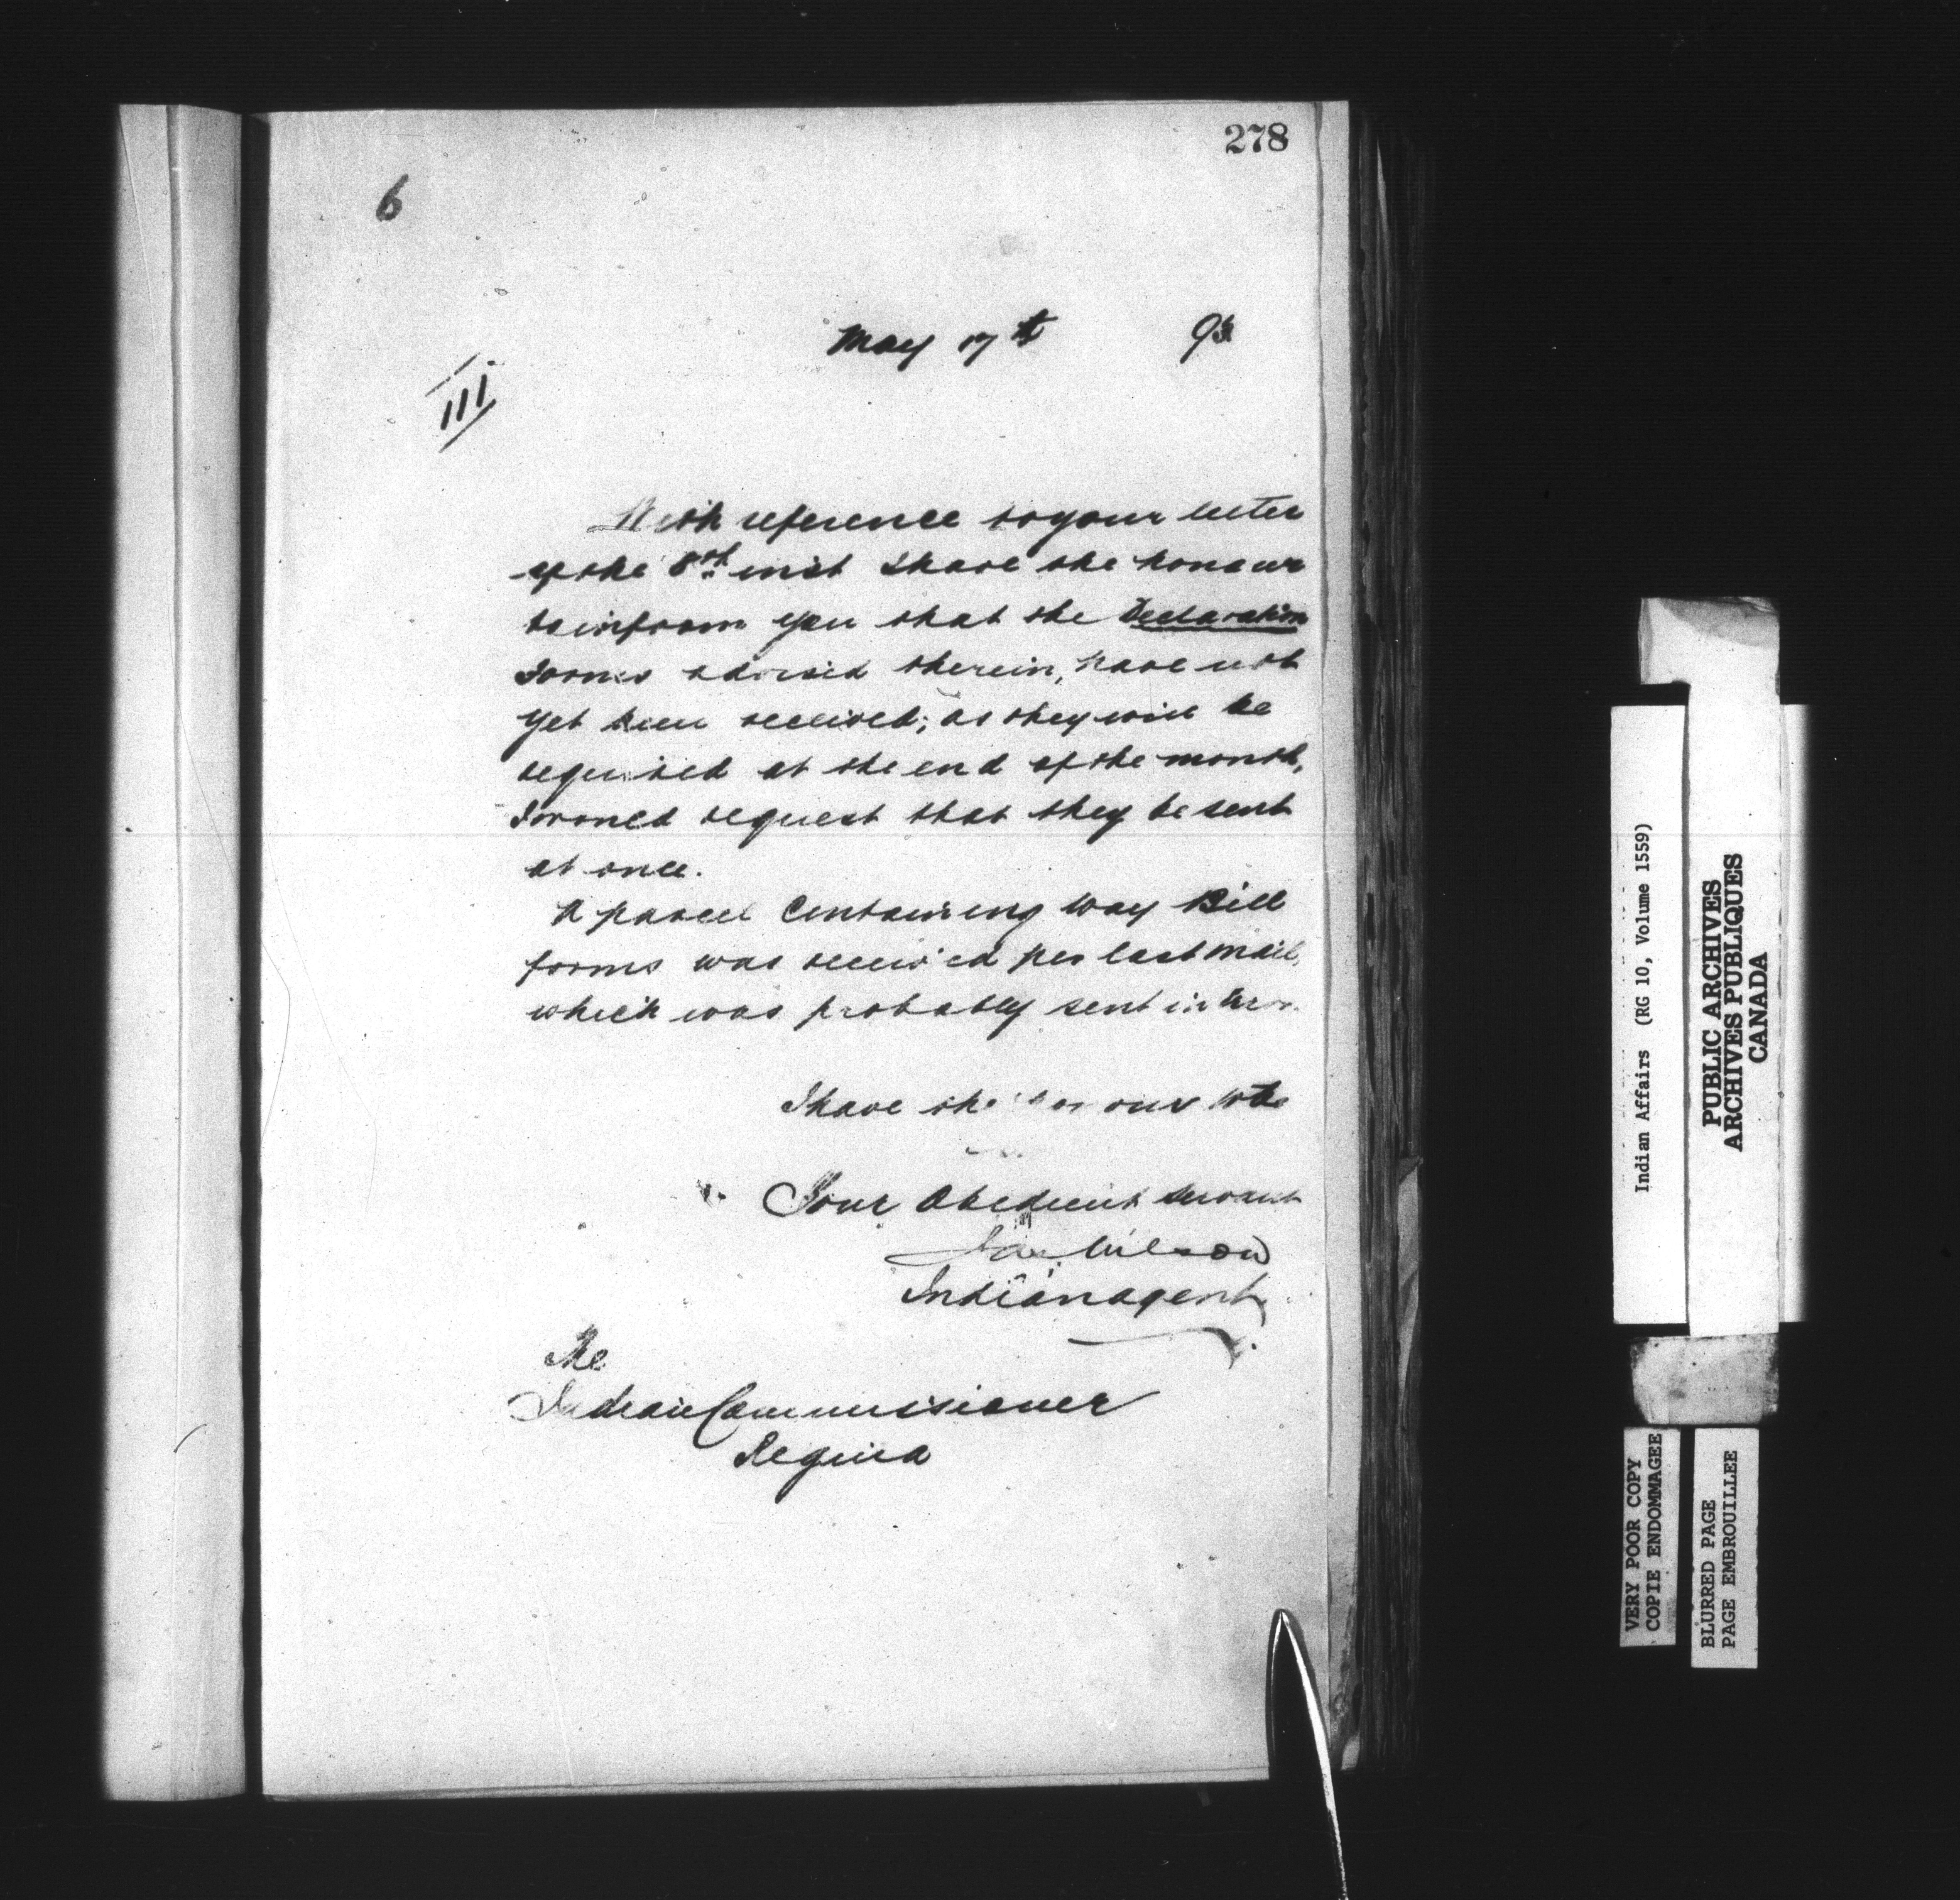 278
6
May 17th 93
III
With reference to your letter
of the 8th inst I have the honour
to inform you that the Declaration
Forms advised therein, have not
yet been received; as they will be
required at the end of the month,
I would request that they be sent
at once.
A parcel containing Way Bill
forms was received per last mail,
which was probably sent in error.
I have the honour to be
Your Obedient Servant
Jas Wilson
Indian agent
The
Indian Commissioner
Regina
Indian Affairs (RG 10, Volume 1559)
PUBLIC ARCHIVES
ARCHIVES PUBLIQUES
CANADA
VERY POOR COPY
COPIE ENDOMMAGEE
BLURRED PAGE
PAGE EMBROUILLEE